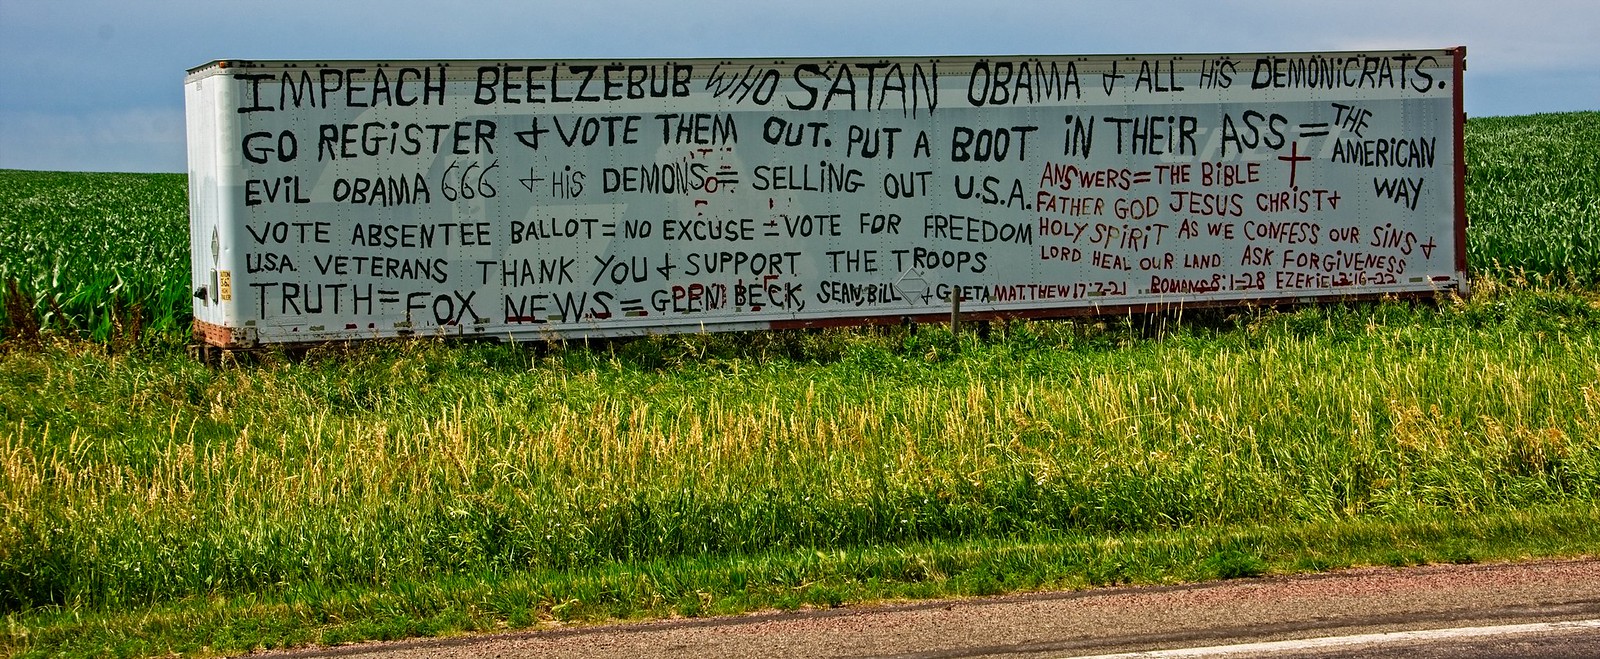 IMPEACH BEELZEBUB WHO SATAN OBAMA & ALL HiS DEMONiCRATS.
GO REGiSTER & VOTE THEM OUT. PUT A BOOT iN THEiR ASS = THE AMERiCAN WAY
EViL OBAMA 666 & HiS DEMONS = SELLiNG OUT U.S.A.
VOTE ABSENTEE BALLOT = NO EXCUSE = VOTE FOR FREEDOM
U.S.A. VETERANS THANK YOU & SUPPORT THE TROOPS
TRUTH = FOX NEWS = GLEN BECK, SEAN, BiLL & GRETA
ANSWERS = THE BiBLE
FATHER GOD JESUS CHRiST &
HOLY SPiRiT AS WE CONFESS OUR SiNS &
LORD HEAL OUR LAND ASK FORGiVENESS
MATTHEW 17:7-21 ROMANS 8:1-28 EZEKiEL 3:16-22